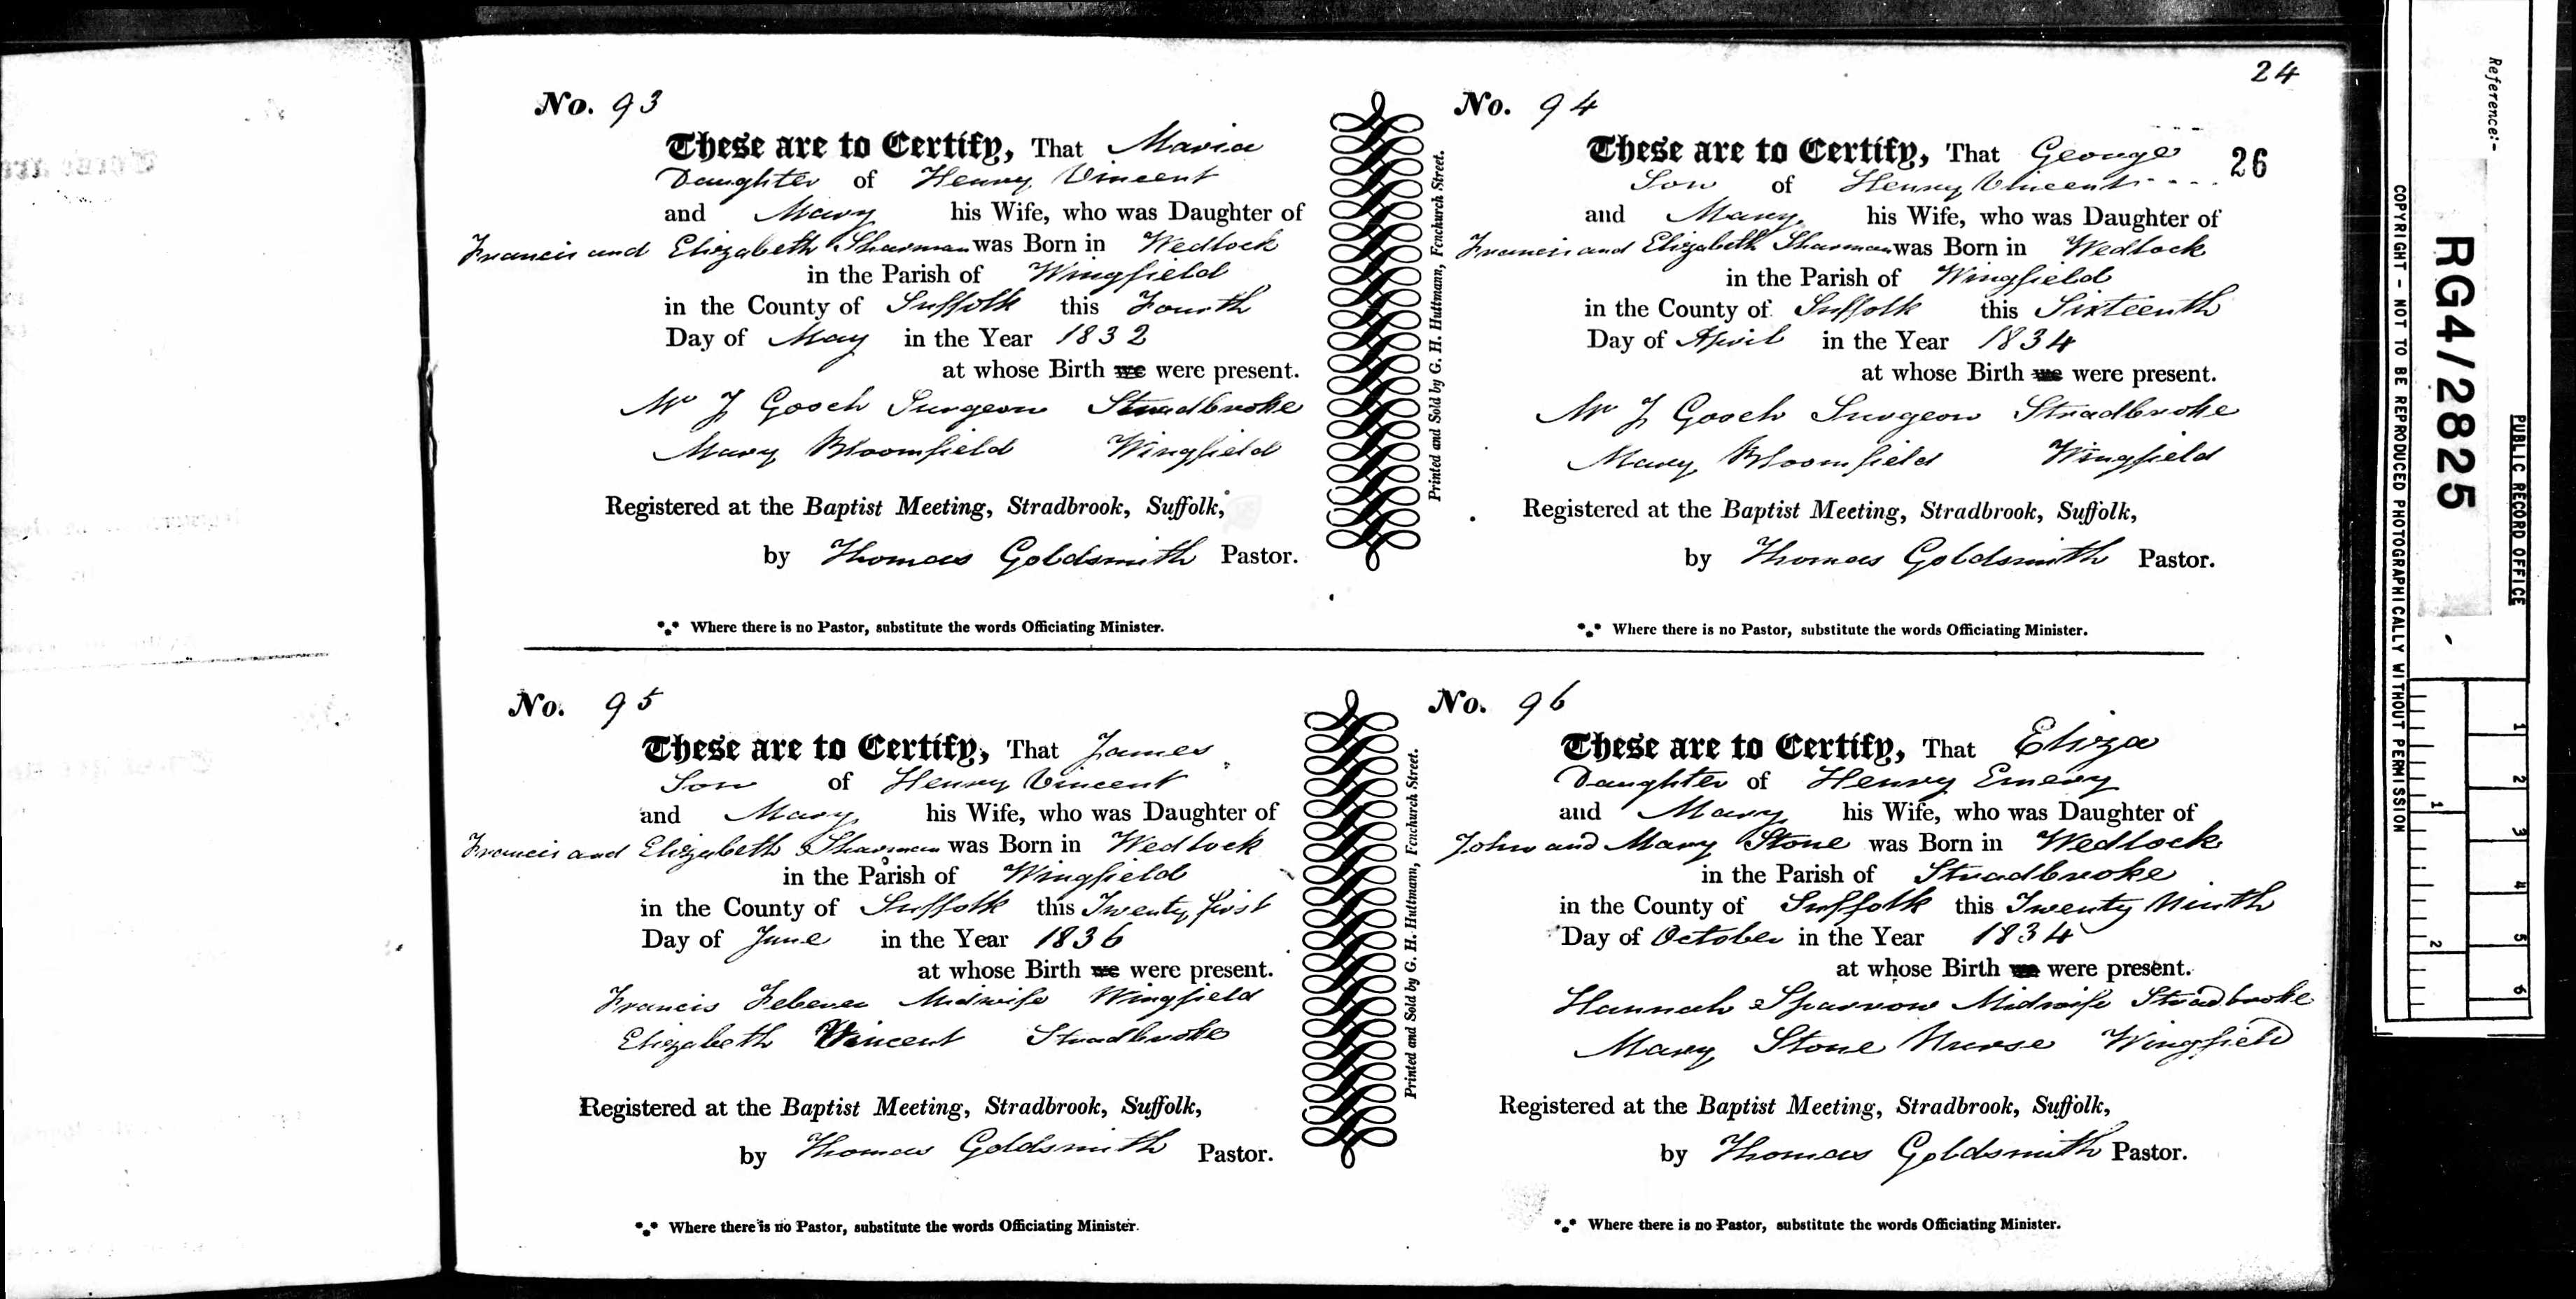 24
No. 93
These are to Certify, That Maria
Daughter of Henry Vincent
and Mary his Wife, who was Daughter of
Francis and Elizabeth Sharman was Born in Wedlock
in the Parish of Wingfield
in the County of Suffolk this Fourth
Day of May in the Year 1832
at whose Birth we were present.
Mr J Gooch Surgeon Stradbroke
Mary Bloomfield Wingfield
Registered at the Baptist Meeting, Stradbrook, Suffolk,
by Thomas Goldsmith Pastor.
Where there is no Pastor, substitute the words Officiating Minister.
Printed and Sold by G. H. Huttmann, Fenchurch Street.
No. 94
These are to Certify, That George
26
Son of Henry Vincent
and Mary his Wife, who was Daughter of
Francis and Elizabeth Sharman was Born in Wedlock
in the Parish of Wingfield
in the County of Suffolk this Sixteenth
Day of April in the Year 1834
at whose Birth we were present.
Mr J Gooch Surgeon Stradbroke
Mary Bloomfield Wingfield
Registered at the Baptist Meeting, Stradbrook, Suffolk,
by Thomas Goldsmith Pastor.
Where there is no Pastor, substitute the words Officiating Minister.
No. 95
These are to Certify, That James
Son of Henry Vincent
and Mary his Wife, who was Daughter of
Francis and Elizabeth Sharman was Born in Wedlock
in the Parish of Wingfield
in the County of Suffolk this Twenty first
Day of June in the Year 1836
at whose Birth we were present.
Francis Midwife Wingfield
Elizabeth Vincent Stradbroke
Registered at the Baptist Meeting, Stradbrook, Suffolk,
by Thomas Goldsmith Pastor.
Where there is no Pastor, substitute the words Officiating Minister.
Printed and Sold by G. H. Huttmann, Fenchurch Street.
No. 96
These are to Certify, That Eliza
Daughter of Henry Emery
and Mary his Wife, who was Daughter of
John and Mary Stone was Born in Wedlock
in the Parish of Stradbroke
in the County of Suffolk this Twenty Ninth
Day of October in the Year 1834
at whose Birth we were present.
Hannah Sparrow Midwife Stradbroke
Mary Stone Nurse Wingfield
Registered at the Baptist Meeting, Stradbrook, Suffolk,
by Thomas Goldsmith Pastor.
Where there is no Pastor, substitute the words Officiating Minister.
Reference:-
RG4/2825
PUBLIC RECORD OFFICE
COPYRIGHT - NOT TO BE REPRODUCED PHOTOGRAPHICALLY WITHOUT PERMISSION
1
2
3
4
5
6
1
2